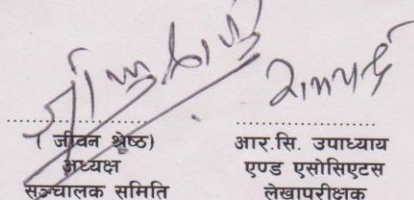 ( जीवन श्रेष्ठ)
अध्यक्ष
सञ्चालक समिति
आर.सि. उपाध्याय
एण्ड एसोसिएटस
लेखापरीक्षक